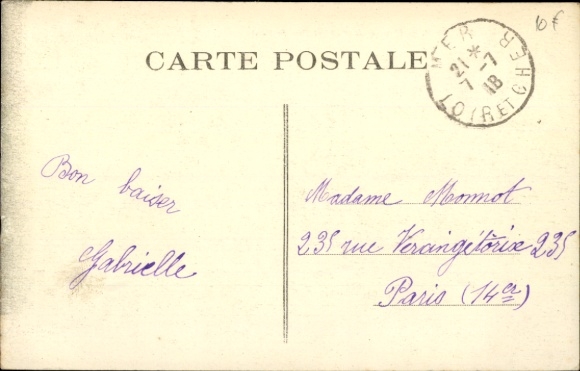 6F
CARTE POSTALE
MER
21*
7-7
18
LOIR ET CHER
Bon baiser
Gabrielle
Madame Monnot
235 rue Verangétorix 235
Paris (14er)